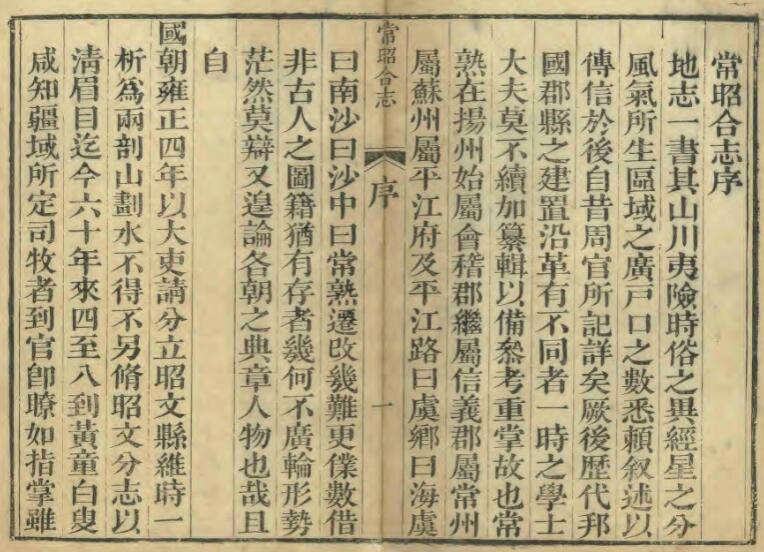 常昭合志序
地志一書其山川夷險時俗之異經星之分
風氣所生區域之廣戸口之數悉頼叙述以
傳信於後自昔周官所記詳矣厥後歴代邦
國郡縣之建置沿革有不同者一時之學士
大夫莫不續加纂輯以備叅考重掌故也常
熟在揚州始屬會稽郡繼屬信義郡屬常州
屬蘇州屬平江府及平江路曰虞鄉曰海虞
常昭合志
序
一
曰南沙曰沙中曰常熟遷改幾難更僕數借
非古人之圖籍猶有存者幾何不廣輪形勢
茫然莫辯又遑論各朝之典章人物也哉且
自
國朝雍正四年以大吏請分立昭文縣維時一
析為兩剖山劃水不得不另脩昭文分志以
清眉目迄今六十年來四至八到黃童白叟
咸知疆域所定司牧者到官卽瞭如指掌雖